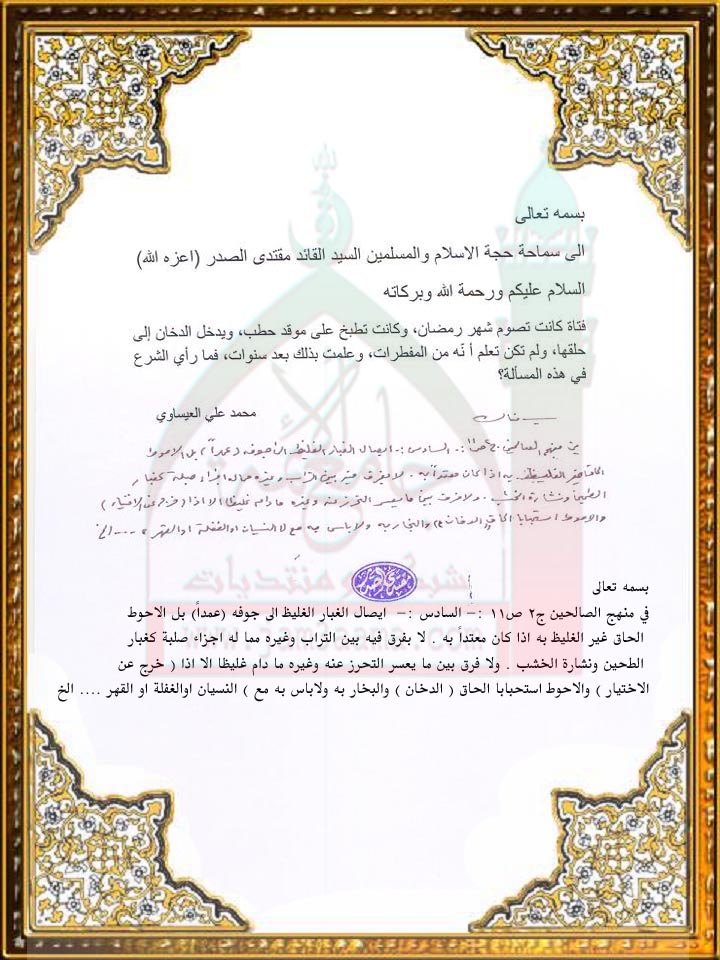 بسمه تعالى
الى سماحة حجة الاسلام والمسلمين السيد القائد مقتدى الصدر (اعزه الله)
السلام عليكم ورحمة الله وبركاته
فتاة كانت تصوم شهر رمضان، وكانت تطبخ على موقد حطب، ويدخل الدخان إلى
حلقها، ولم تكن تعلم أ نّه من المفطرات، وعلمت بذلك بعد سنوات، فما رأي الشرع
في هذه المسألة؟
محمد علي العيساوي
السادس :- ايصال الغبار الغليظ الى جوفه (عمداً) بل الاحوط
الحاق غير الغليظ به اذا كان معتداً به . لا يفرق فيه بين التراب وغيره مما له اجزاء صلبة كغبار
الطحين ونشارة الخشب . ولا فرق بين ما يعسر التحرز عنه وغيره ما دام غليظا الا اذا (خرج عن الاختيار)
والاحوط استحبابا الحاق (الدخان) والبخار به ولاباس به مع النسيان او الغفلة او القهر .... الخ
شبكة ومنتديات
بسمه تعالى
في منهج الصالحين ج٢ ص١١ :- السادس :- ايصال الغبار الغليظ الى جوفه (عمداً) بل الاحوط
الحاق غير الغليظ به اذا كان معتداً به . لا يفرق فيه بين التراب وغيره مما له اجزاء صلبة كغبار
الطحين ونشارة الخشب . ولا فرق بين ما يعسر التحرز عنه وغيره ما دام غليظا الا اذا ( خرج عن
الاختيار ) والاحوط استحبابا الحاق ( الدخان ) والبخار به ولاباس به مع ) النسيان اوالغفلة او القهر .... الخ